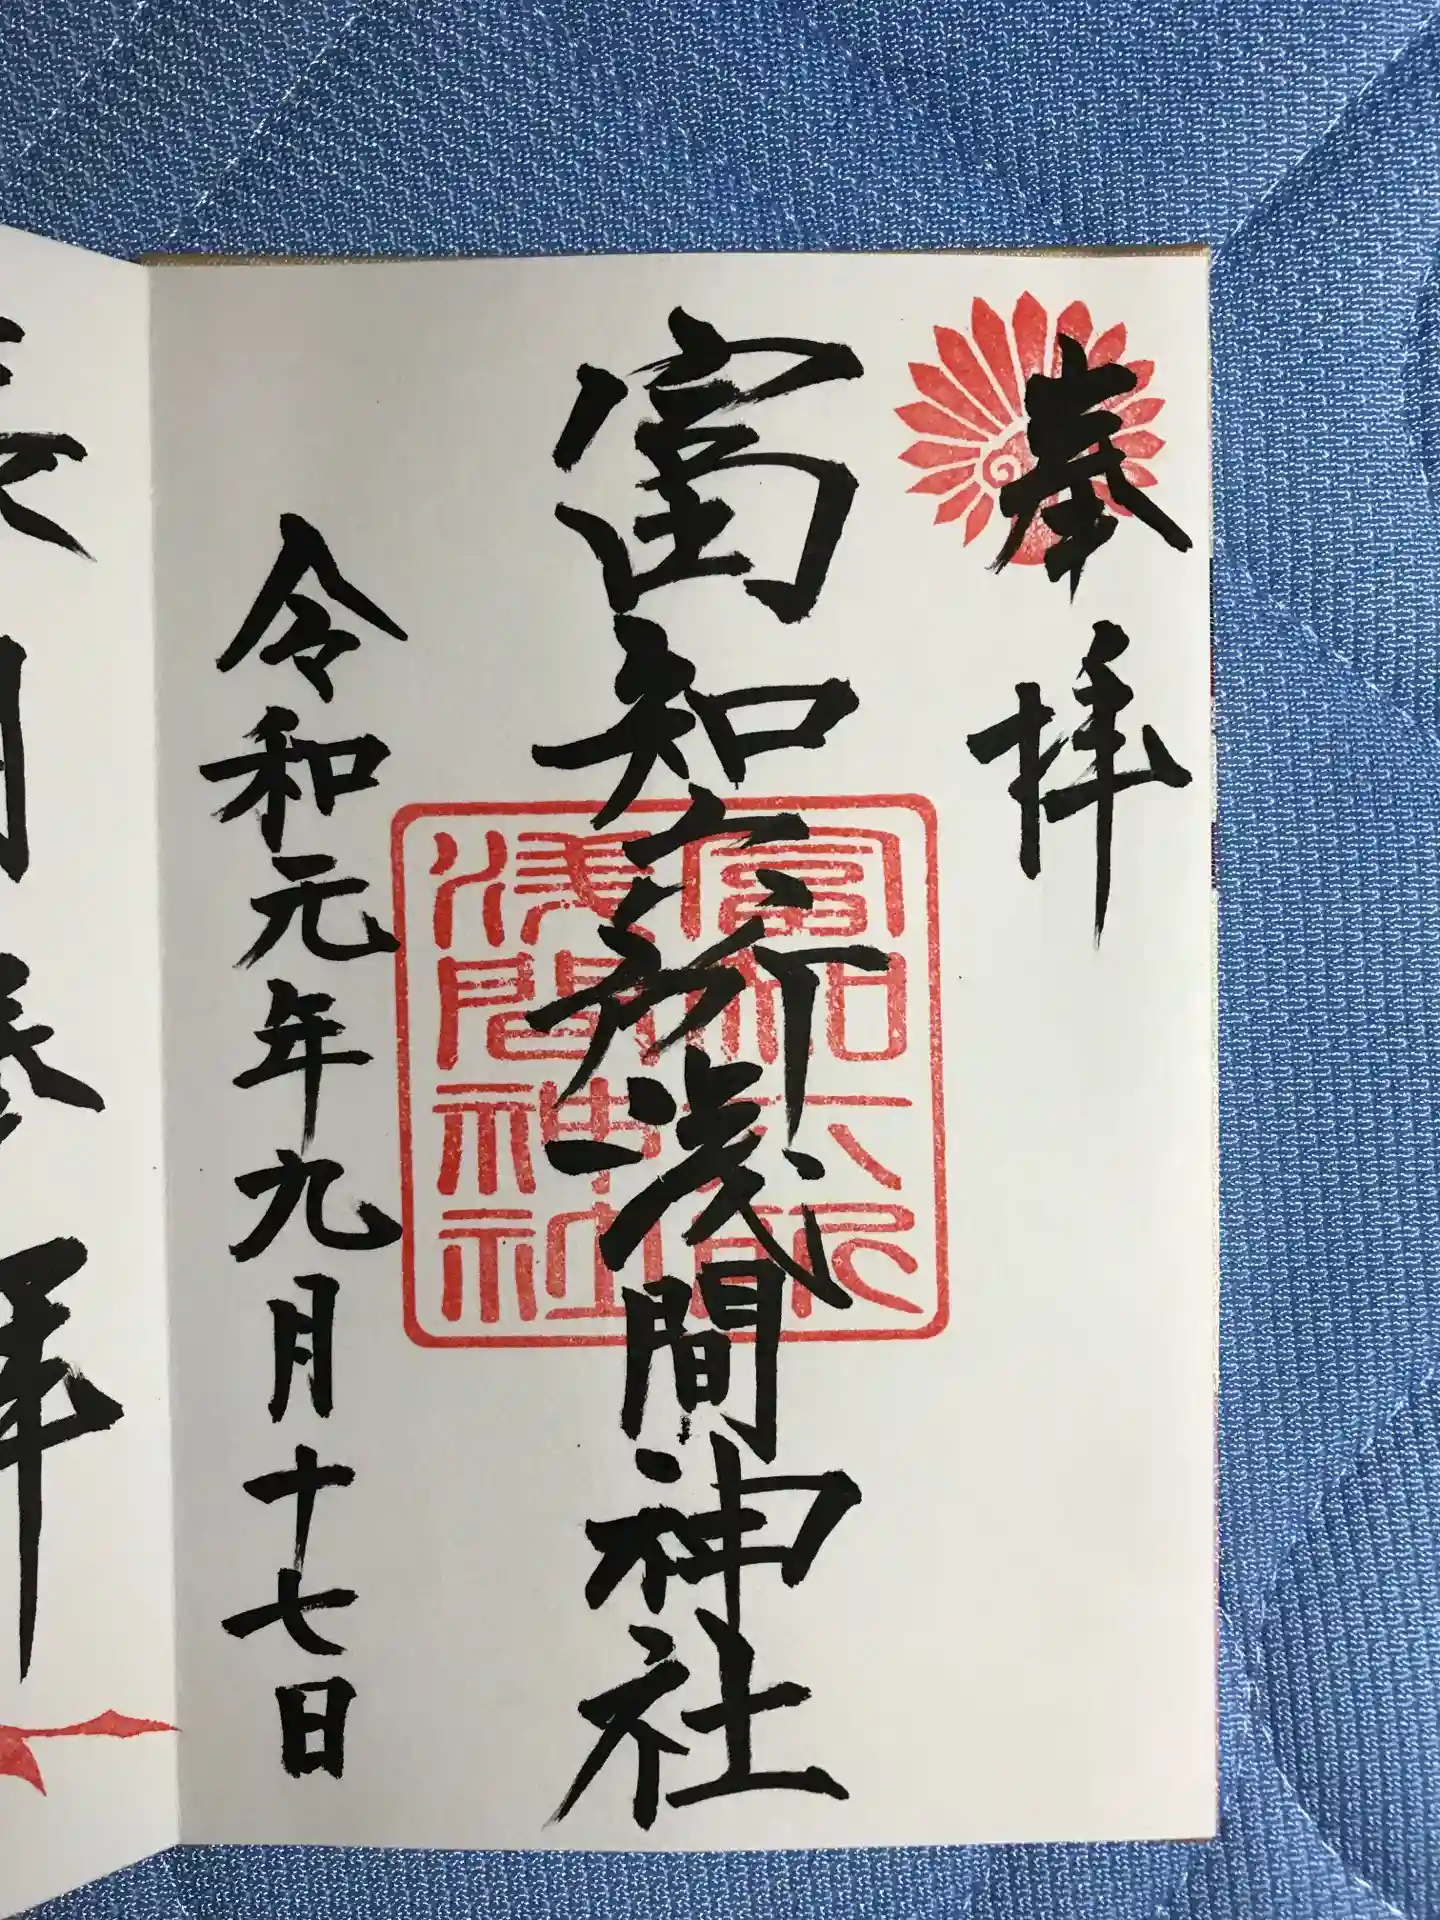 奉拝
富知六所浅間神社
富知六所
浅間神社
令和元年九月十七日